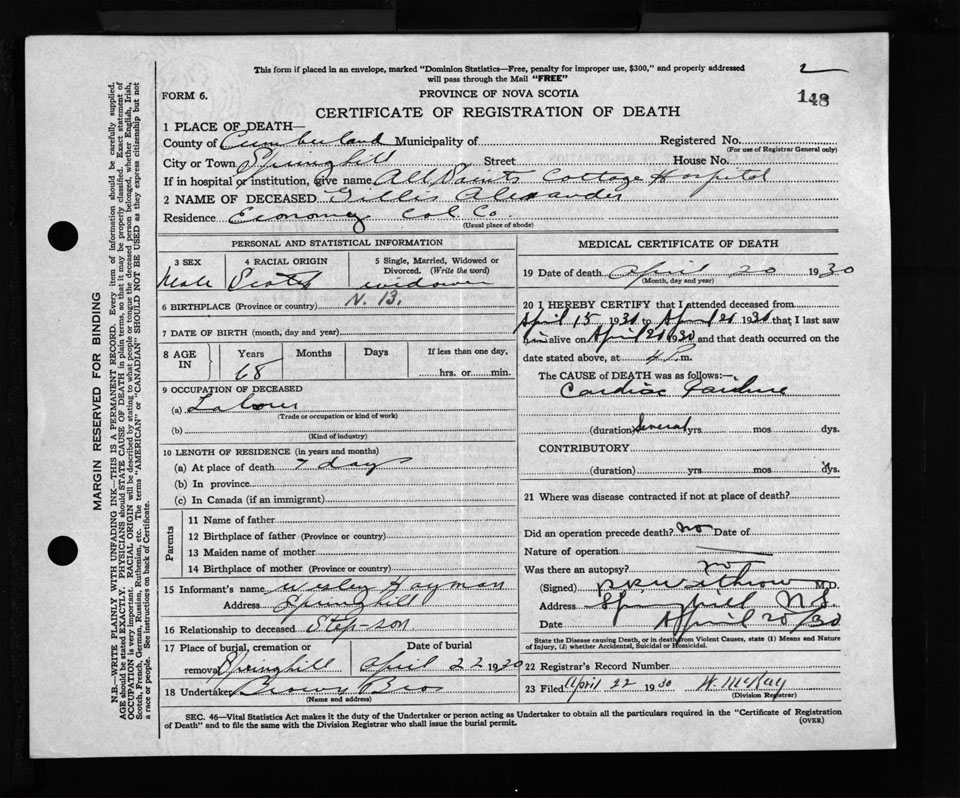 This form if placed in an envelope, marked "Dominion Statistics—Free, penalty for improper use, $300," and properly addressed
will pass through the Mail "FREE"
2
148
FORM 6.
PROVINCE OF NOVA SCOTIA
CERTIFICATE OF REGISTRATION OF DEATH
1 PLACE OF DEATH—
County of Cumberland Municipality of Registered No.
(For use of Registrar General only)
City or Town Springhill Street House No.
If in hospital or institution, give name All Saints Cottage Hospital
2 NAME OF DECEASED Gillis Alexander
Residence Economy Col. Co.
(Usual place of abode)
PERSONAL AND STATISTICAL INFORMATION
3 SEX
Male
4 RACIAL ORIGIN
Scotch
5 Single, Married, Widowed or
Divorced. (Write the word)
widower
6 BIRTHPLACE (Province or country) N. B.
7 DATE OF BIRTH (month, day and year)
8 AGE IN
Years
68
Months
Days
If less than one day,
hrs. or min.
9 OCCUPATION OF DECEASED
(a) Labour
(Trade or occupation or kind of work)
(b)
(Kind of industry)
10 LENGTH OF RESIDENCE (in years and months)
(a) At place of death 7 days
(b) In province
(c) In Canada (if an immigrant)
Parents
11 Name of father
12 Birthplace of father (Province or country)
13 Maiden name of mother
14 Birthplace of mother (Province or country)
15 Informant's name Wesley Hayman
Address Springhill
16 Relationship to deceased Step-son
17 Place of burial, cremation or
removal Springhill
Date of burial
April 22 1930
18 Undertaker Brown Bros
(Name and address)
MEDICAL CERTIFICATE OF DEATH
19 Date of death April 20 1930
(Month, day and year)
20 I HEREBY CERTIFY that I attended deceased from
April 15 1930 to April 20 1930 that I last saw
him alive on April 20 1930 and that death occurred on the
date stated above, at 4 P. m.
The CAUSE of DEATH was as follows:—
Cardiac Failure
(duration) Several yrs mos dys.
CONTRIBUTORY
(duration) yrs mos dys.
21 Where was disease contracted if not at place of death?
Did an operation precede death? no Date of
Nature of operation
Was there an autopsy? no
(Signed) Withrow M.D.
Address Springhill N.S.
Date April 20/30
State the Disease causing Death, or in death from Violent Causes, state (1) Means and Nature
of Injury, (2) whether Accidental, Suicidal or Homicidal.
22 Registrar's Record Number
23 Filed April 22 1930 W. McKay
(Division Registrar)
SEC. 46—Vital Statistics Act makes it the duty of the Undertaker or person acting as Undertaker to obtain all the particulars required in the "Certificate of Registration
of Death" and to file the same with the Division Registrar who shall issue the burial permit.
(OVER)
MARGIN RESERVED FOR BINDING
N.B.—WRITE PLAINLY WITH UNFADING INK—THIS IS A PERMANENT RECORD. Every item of information should be carefully supplied.
AGE should be stated EXACTLY. PHYSICIANS should STATE CAUSE OF DEATH in plain terms, so that it may be properly classified. Exact statement of
OCCUPATION is very important. RACIAL ORIGIN will be described by stating to what people or tongue the deceased person belonged, whether English, Irish,
Scotch, French, German, Russian, Ruthenian, etc. The terms "AMERICAN" or "CANADIAN" SHOULD NOT BE USED as they express citizenship but not
a race or people. See instructions on back of Certificate.